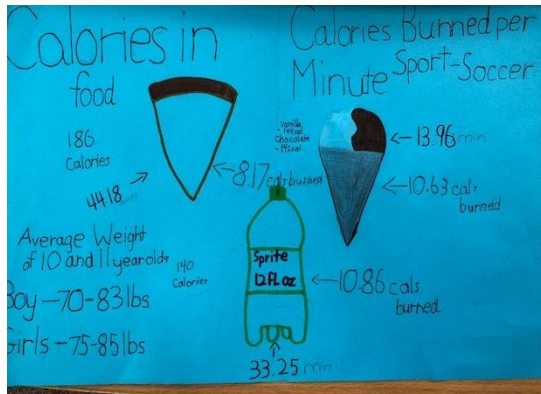 Calories in
food
Calories Burned per
Minute Sport-Soccer
186
Calories
44.18 min
8.17 cals burned
Vanilla
- 144cal
Chocolate
- 142cal
13.96 min
10.63 cals
burned
Average Weight
of 10 and 11 year olds
Boy-70-83lbs
Girls-75-85lbs
140
Calories
Sprite
12FL oz
10.86 cals
burned
33.25 min